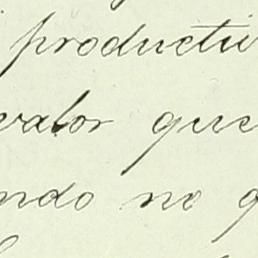 producti
valor que
ndo no q